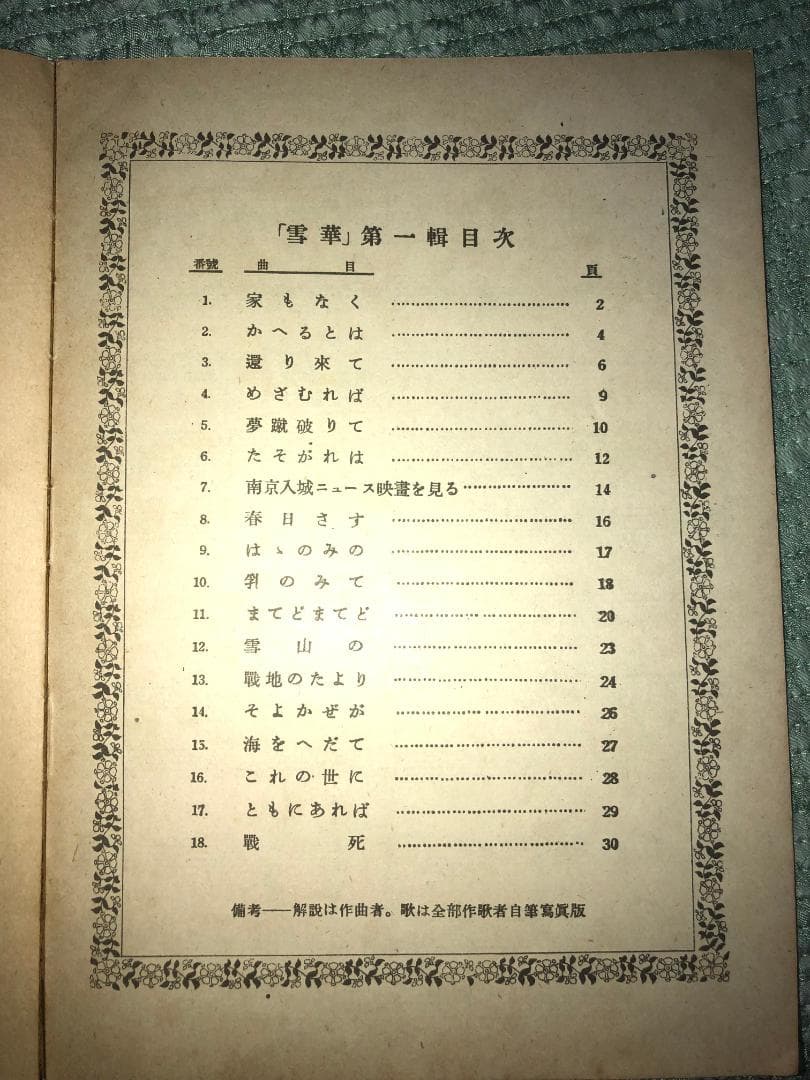 「雪華」第一輯目次
番號 曲目 頁
1. 家もなく ........................ 2
2. かへるとは ........................ 4
3. 還り來て ........................ 6
4. めざむれば ........................ 9
5. 夢蹴破りて ........................ 10
6. たそがれは ........................ 12
7. 南京入城ニュース映畫を見る ........................ 14
8. 春日さす ........................ 16
9. はゝのみの ........................ 17
10. 乳のみて ........................ 18
11. まてどまてど ........................ 20
12. 雪山の ........................ 23
13. 戰地のたより ........................ 24
14. そよかぜが ........................ 26
15. 海をへだて ........................ 27
16. これの世に ........................ 28
17. ともにあれば ........................ 29
18. 戰死 ........................ 30
備考──解説は作曲者。歌は全部作歌者自筆寫眞版